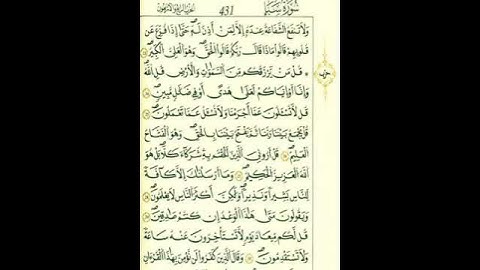 سُورَةُ سَبَإٍ
431
وَلَا تَنفَعُ الشَّفَاعَةُ عِندَهُ إِلَّا لِمَنْ أَذِنَ لَهُ حَتَّى إِذَا فُزِّعَ عَن
قُلُوبِهِمْ قَالُوا مَاذَا قَالَ رَبُّكُمْ قَالُوا الْحَقَّ وَهُوَ الْعَلِيُّ الْكَبِيرُ
قُلْ مَن يَرْزُقُكُم مِّنَ السَّمَٰوَٰتِ وَالْأَرْضِ قُلِ اللَّهُ
وَإِنَّا أَوْ إِيَّاكُمْ لَعَلَىٰ هُدًى أَوْ فِي ضَلَٰلٍ مُّبِينٍ
قُل لَّا تُسْـَٔلُونَ عَمَّا أَجْرَمْنَا وَلَا نُسْـَٔلُ عَمَّا تَعْمَلُونَ
قُلْ يَجْمَعُ بَيْنَنَا رَبُّنَا ثُمَّ يَفْتَحُ بَيْنَنَا بِالْحَقِّ وَهُوَ الْفَتَّاحُ
الْعَلِيمُ قُلْ أَرُونِيَ الَّذِينَ أَلْحَقْتُم بِهِ شُرَكَاءَ كَلَّا بَلْ هُوَ
اللَّهُ الْعَزِيزُ الْحَكِيمُ وَمَا أَرْسَلْنَٰكَ إِلَّا كَافَّةً
لِّلنَّاسِ بَشِيرًا وَنَذِيرًا وَلَٰكِنَّ أَكْثَرَ النَّاسِ لَا يَعْلَمُونَ
وَيَقُولُونَ مَتَىٰ هَٰذَا الْوَعْدُ إِن كُنتُمْ صَٰدِقِينَ
قُل لَّكُم مِّيعَادُ يَوْمٍ لَّا تَسْتَـْٔخِرُونَ عَنْهُ سَاعَةً
وَلَا تَسْتَقْدِمُونَ وَقَالَ الَّذِينَ كَفَرُوا لَن نُّؤْمِنَ بِهَٰذَا الْقُرْءَانِ